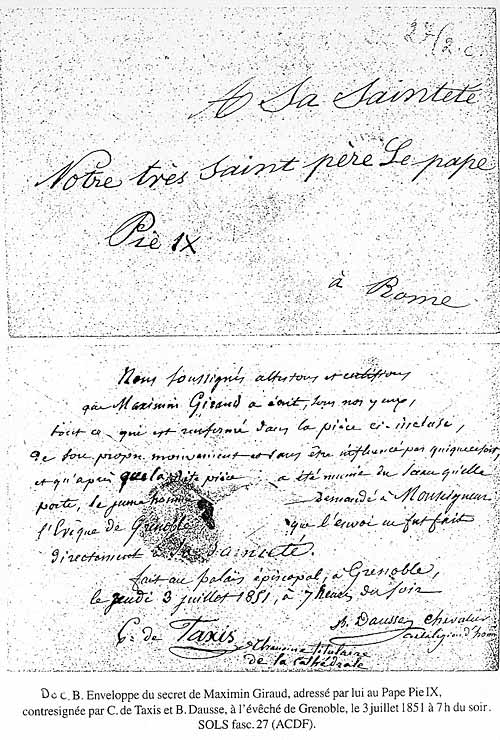 27/2.c
A Sa Sainteté
Notre très Saint père Le pape
Pie IX
à Rome
Nous soussignés attestons et certifions
que Maximin Giraud a écrit, sous nos yeux,
tout ce qui est renfermé dans la pièce ci-incluse,
de son propre mouvement et sans être influencé par quique ce soit,
et qu'après que la dite pièce a été munie du sceau qu'elle
porte, le jeune homme demandé à Monseigneur
l'Evêque de Grenoble que l'envoi en fut fait
directement à Sa Sainteté.
fait au palais épiscopal, à Grenoble,
le jeudi 3 juillet 1851, à 7 heures du soir
C. de Taxis
Chanoine titulaire
de la cathédrale
Dausse chevalier
Doc. B. Enveloppe du secret de Maximin Giraud, adressé par lui au Pape Pie IX,
contresignée par C. de Taxis et B. Dausse, à l'évêché de Grenoble, le 3 juillet 1851 à 7 h du soir.
SOLS fasc. 27 (ACDF).